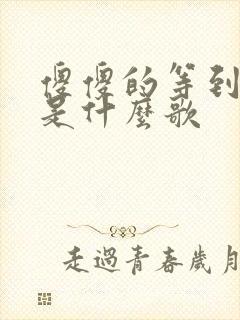 傻傻的等到
是什麼歌
走過青春歲月